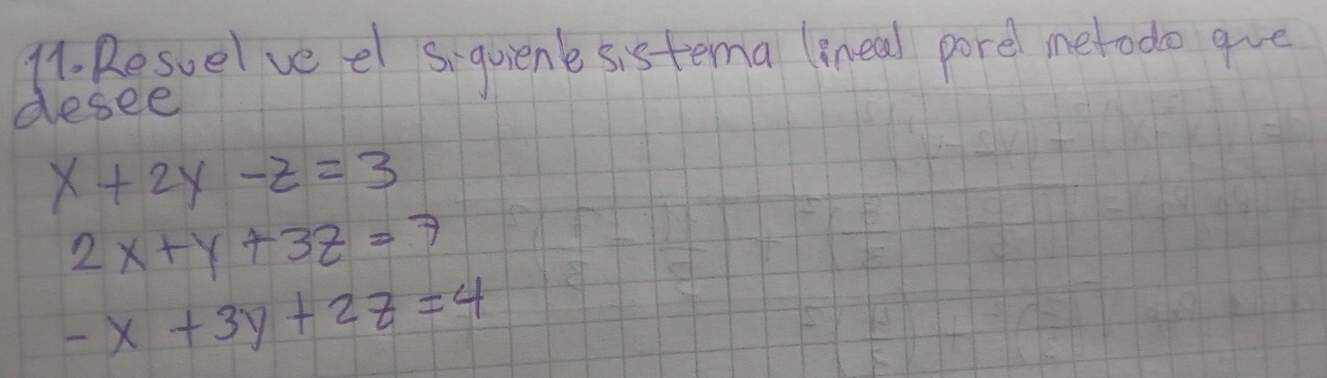 11. Resuelve el siguiente sistema lineal por el metodo que
desee
x + 2y - z = 3
2x + y + 3z = 7
-x + 3y + 2z = 4